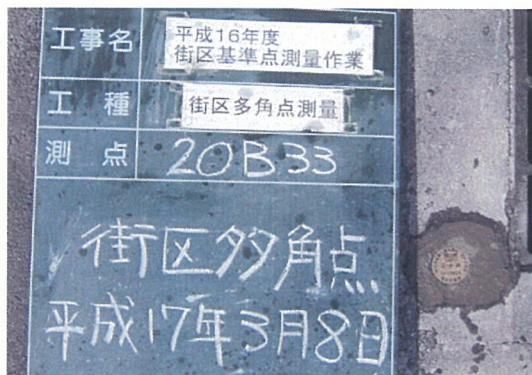 工事名
平成16年度
街区基準点測量作業
工種
街区多角点測量
測点
20B33
街区多角点
平成17年3月8日